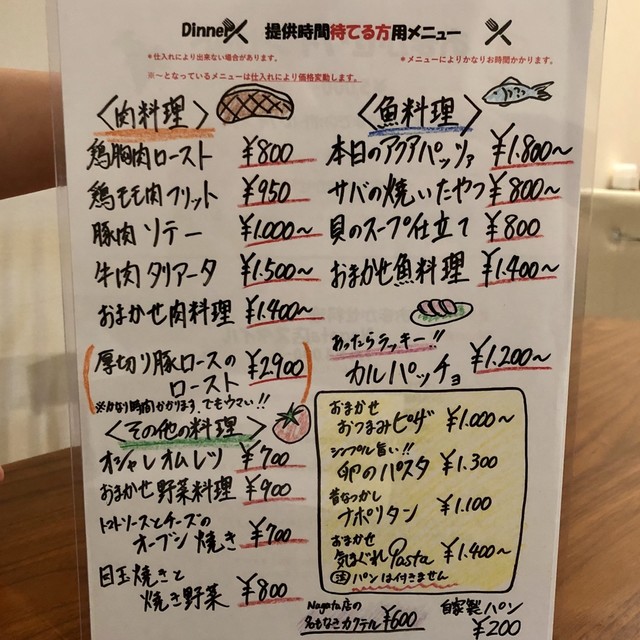 Dinner 提供時間待てる方用メニュー
*仕入れにより出来ない場合があります。
*メニューによりかなりお時間かかります。
※～となっているメニューは仕入れにより価格変動します。
〈肉料理〉
鶏胸肉ロースト ¥800
鶏モモ肉フリット ¥950
豚肉ソテー ¥1.000～
牛肉タリアータ ¥1.500～
おまかせ肉料理 ¥1.400～
厚切り豚ロースの
ロースト ¥2900
※かなり時間かかります でもウマい!!
〈その他の料理〉
オシャレオムレツ ¥700
おまかせ野菜料理 ¥900
トマトソースとチーズの
オーブン焼き ¥700
目玉焼きと
焼き野菜 ¥800
〈魚料理〉
本日のアクアパッツァ ¥1.800～
サバの焼いたやつ ¥800～
貝のスープ仕立て ¥800
おまかせ魚料理 ¥1.400～
あったらラッキー!!
カルパッチョ ¥1.200～
おまかせ
おつまみピザ ¥1.000～
シンプル旨い!!
卵のパスタ ¥1.300
昔なつかし
ナポリタン ¥1.100
おまかせ
気まぐれPasta ¥1.400～
注 パンは付きません
Nagata店の
名もなきカクテル ¥600
自家製パン
¥200